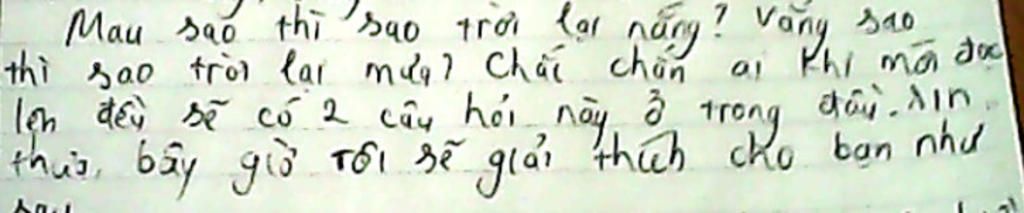 Mau sao thì sao trời lại nắng? Vắng sao
thì sao trời lại mưa? Chắc chắn ai khi mới đọc
lên đều sẽ có 2 câu hỏi này ở trong đầu. Xin
thưa, bây giờ tôi sẽ giải thích cho bạn như
sau